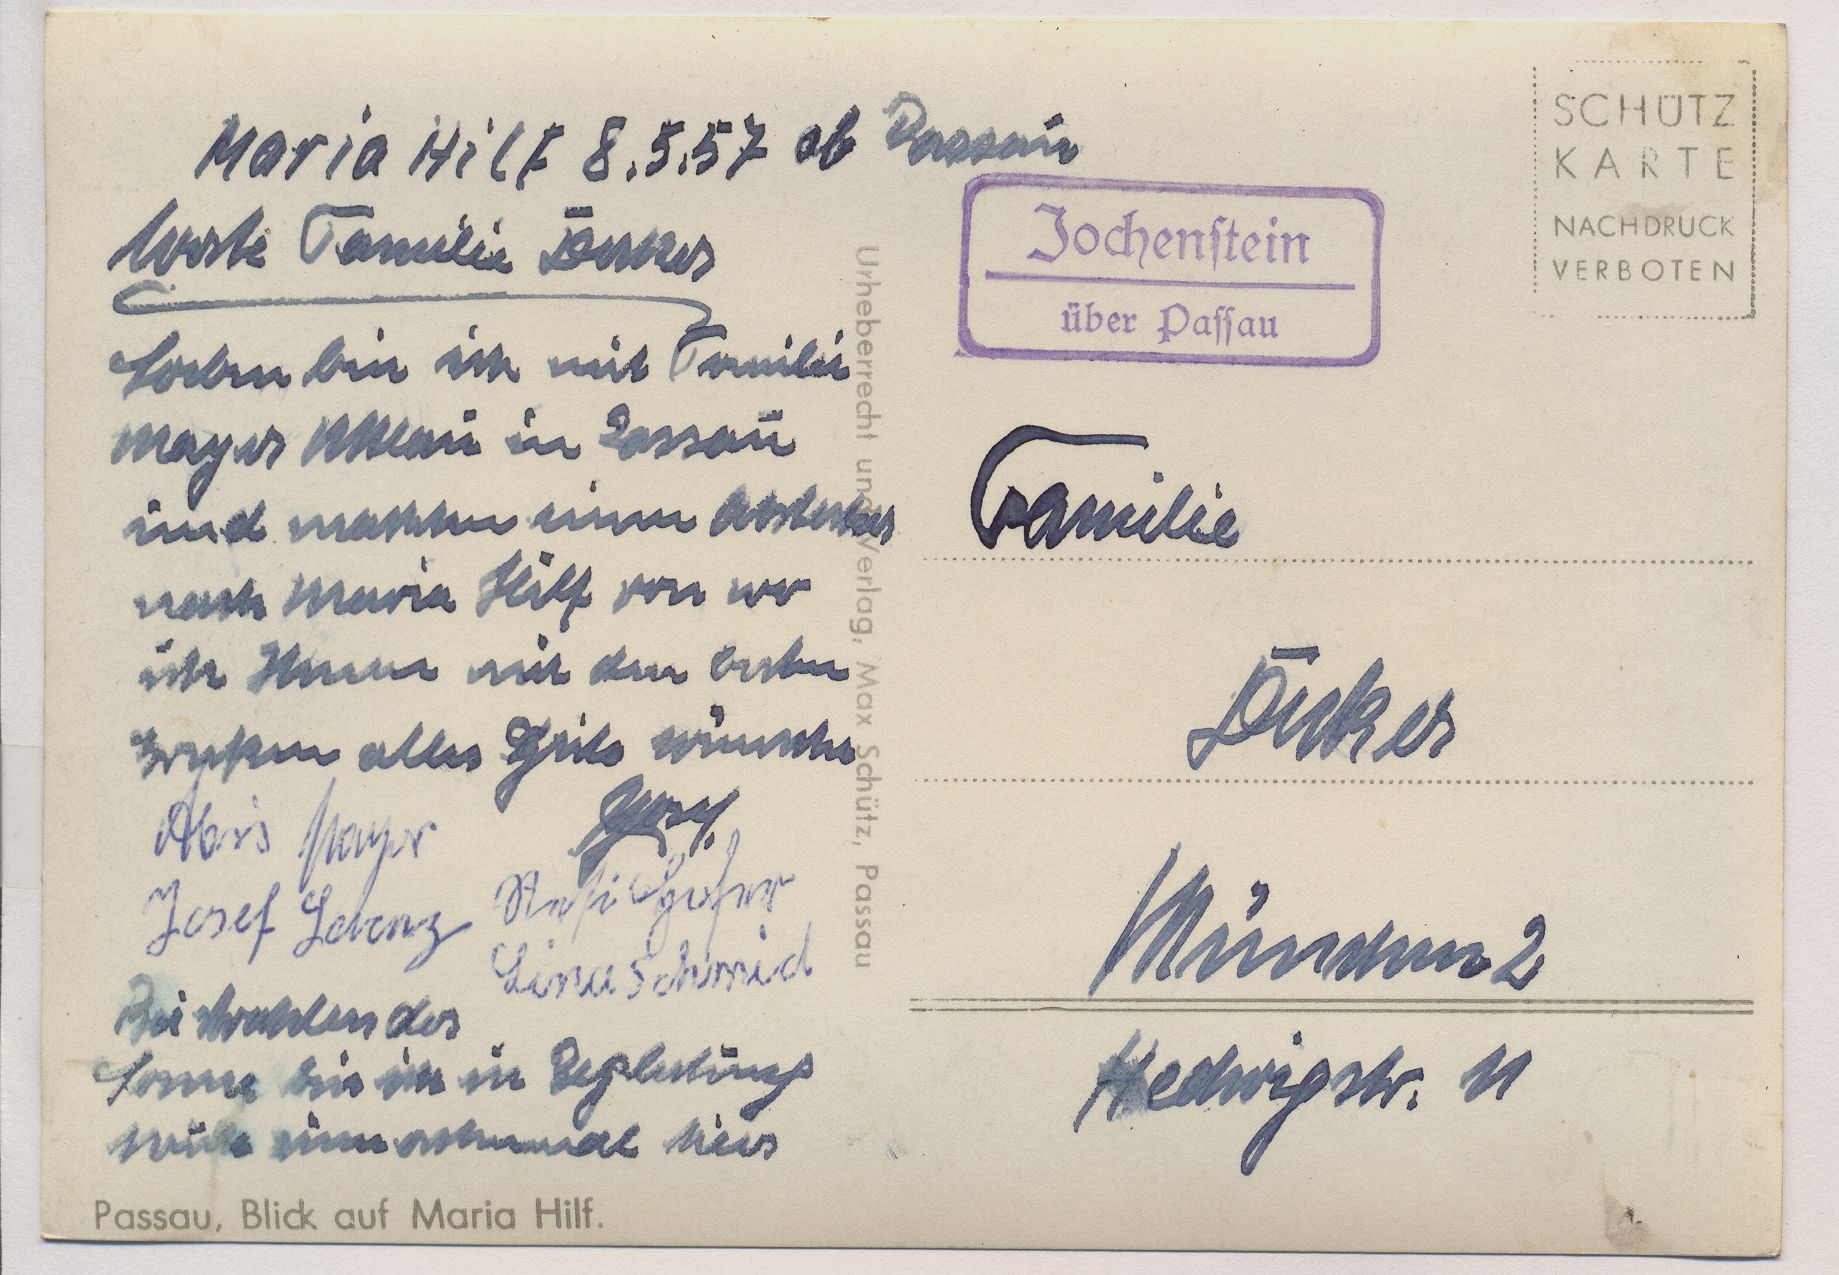 Maria Hilf 8.5.57 ob Passau
Werte Familie Ducker
Soeben bin ich mit Familie
Mayer in Passau
und machten einen Abstecher
nach Maria Hilf von wo
ich Ihnen mit den besten
Grüßen alles Gute wünsche
Josef
Alois Mayer
Josef Lorenz
Lina Schmid
Bei strahlender
Sonne bin ich in Begleitung
hier
Passau, Blick auf Maria Hilf.
Urheberrecht und Verlag, Max Schütz, Passau
Jochenstein
über Passau
SCHÜTZ
KARTE
NACHDRUCK
VERBOTEN
Familie
Ducker
München 2
Hedwigstr. 11